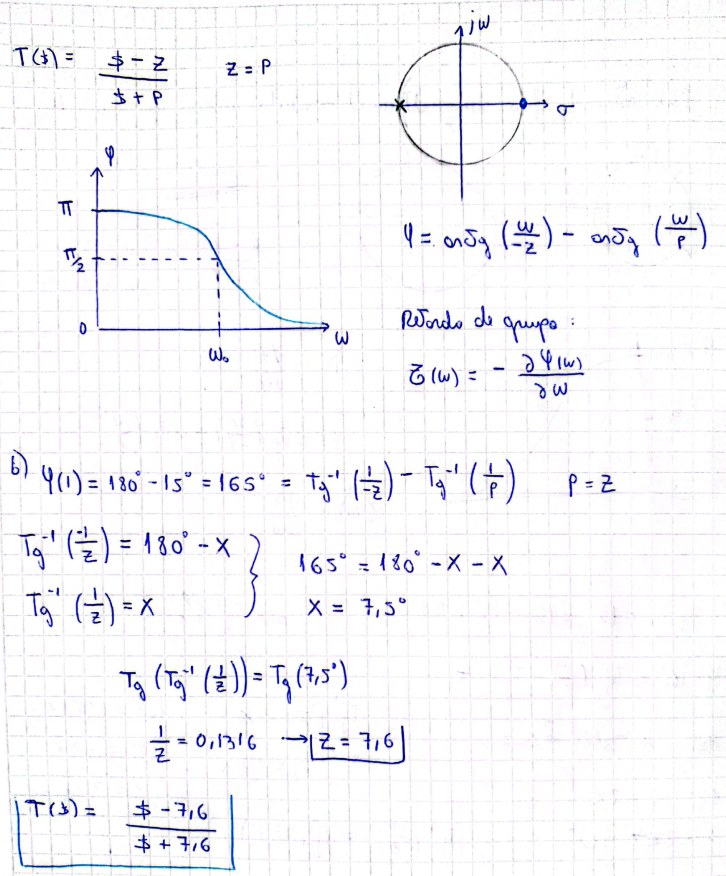 T($) = $ - z / $ + p    z = p
jω
σ
φ
π
π/2
0
ω₀
ω
φ = arctg (ω/-z) - arctg (ω/p)
Retardo de grupo :
τ(ω) = - ∂φ(ω)/∂ω
b) φ(1) = 180° - 15° = 165° = Tg⁻¹ (1/-z) - Tg⁻¹ (1/p)    p = z
Tg⁻¹ (-1/z) = 180° - x
Tg⁻¹ (1/z) = x
165° = 180° - x - x
x = 7,5°
Tg (Tg⁻¹ (1/z)) = Tg (7,5°)
1/z = 0,1316 → z = 7,6
T($) = $ - 7,6 / $ + 7,6